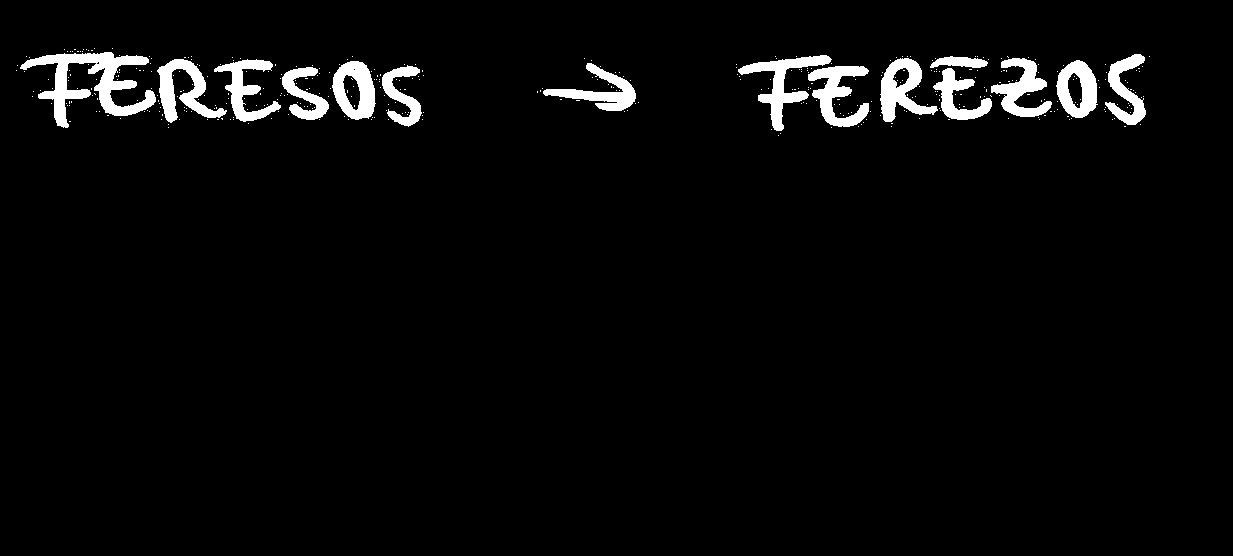 FERESOS → FEREZOS